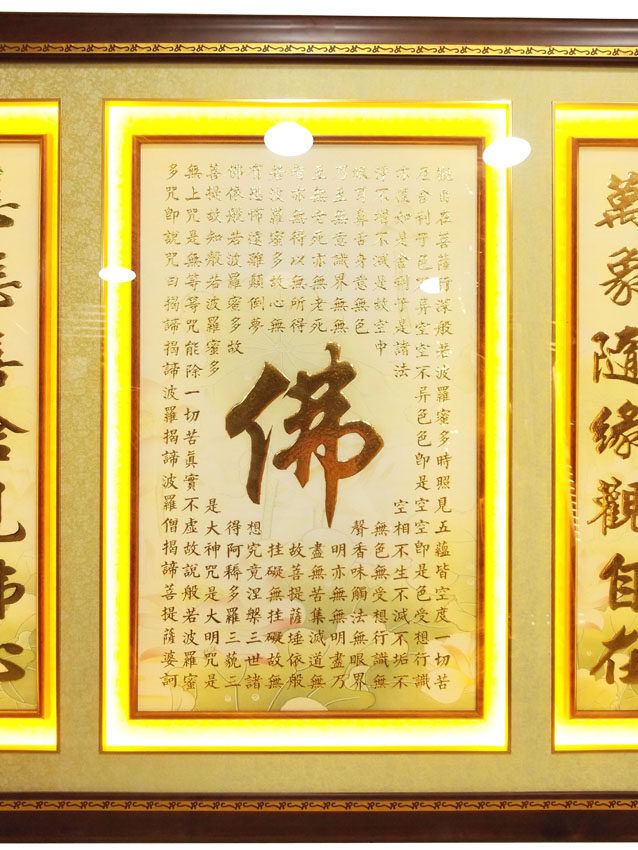 萬象隨緣觀自在
觀自在菩薩行深般若波羅蜜多時照見五蘊皆空度一切苦
厄舍利子色不異空空不异色色即是空空即是色受想行識
亦復如是舍利子是諸法空相不生不滅不垢不
淨不增不減是故空中無色無受想行識無
眼耳鼻舌身意無色聲香味觸法無眼界
乃至無意識界無無明亦無無明盡乃
至無老死亦無老死盡無苦集滅道無
智亦無得以無所得故菩提薩埵依般
若波羅蜜多故心無挂礙無挂礙故無
有恐怖遠離顛倒夢想究竟涅槃三世諸
佛依般若波羅蜜多故得阿耨多羅三藐三
菩提故知般若波羅蜜多是大神咒是大明咒是
無上咒是無等等咒能除一切苦真實不虛故說般若波羅蜜
多咒即說咒曰揭諦揭諦波羅揭諦波羅僧揭諦菩提薩婆訶
佛
悲喜捨見佛心